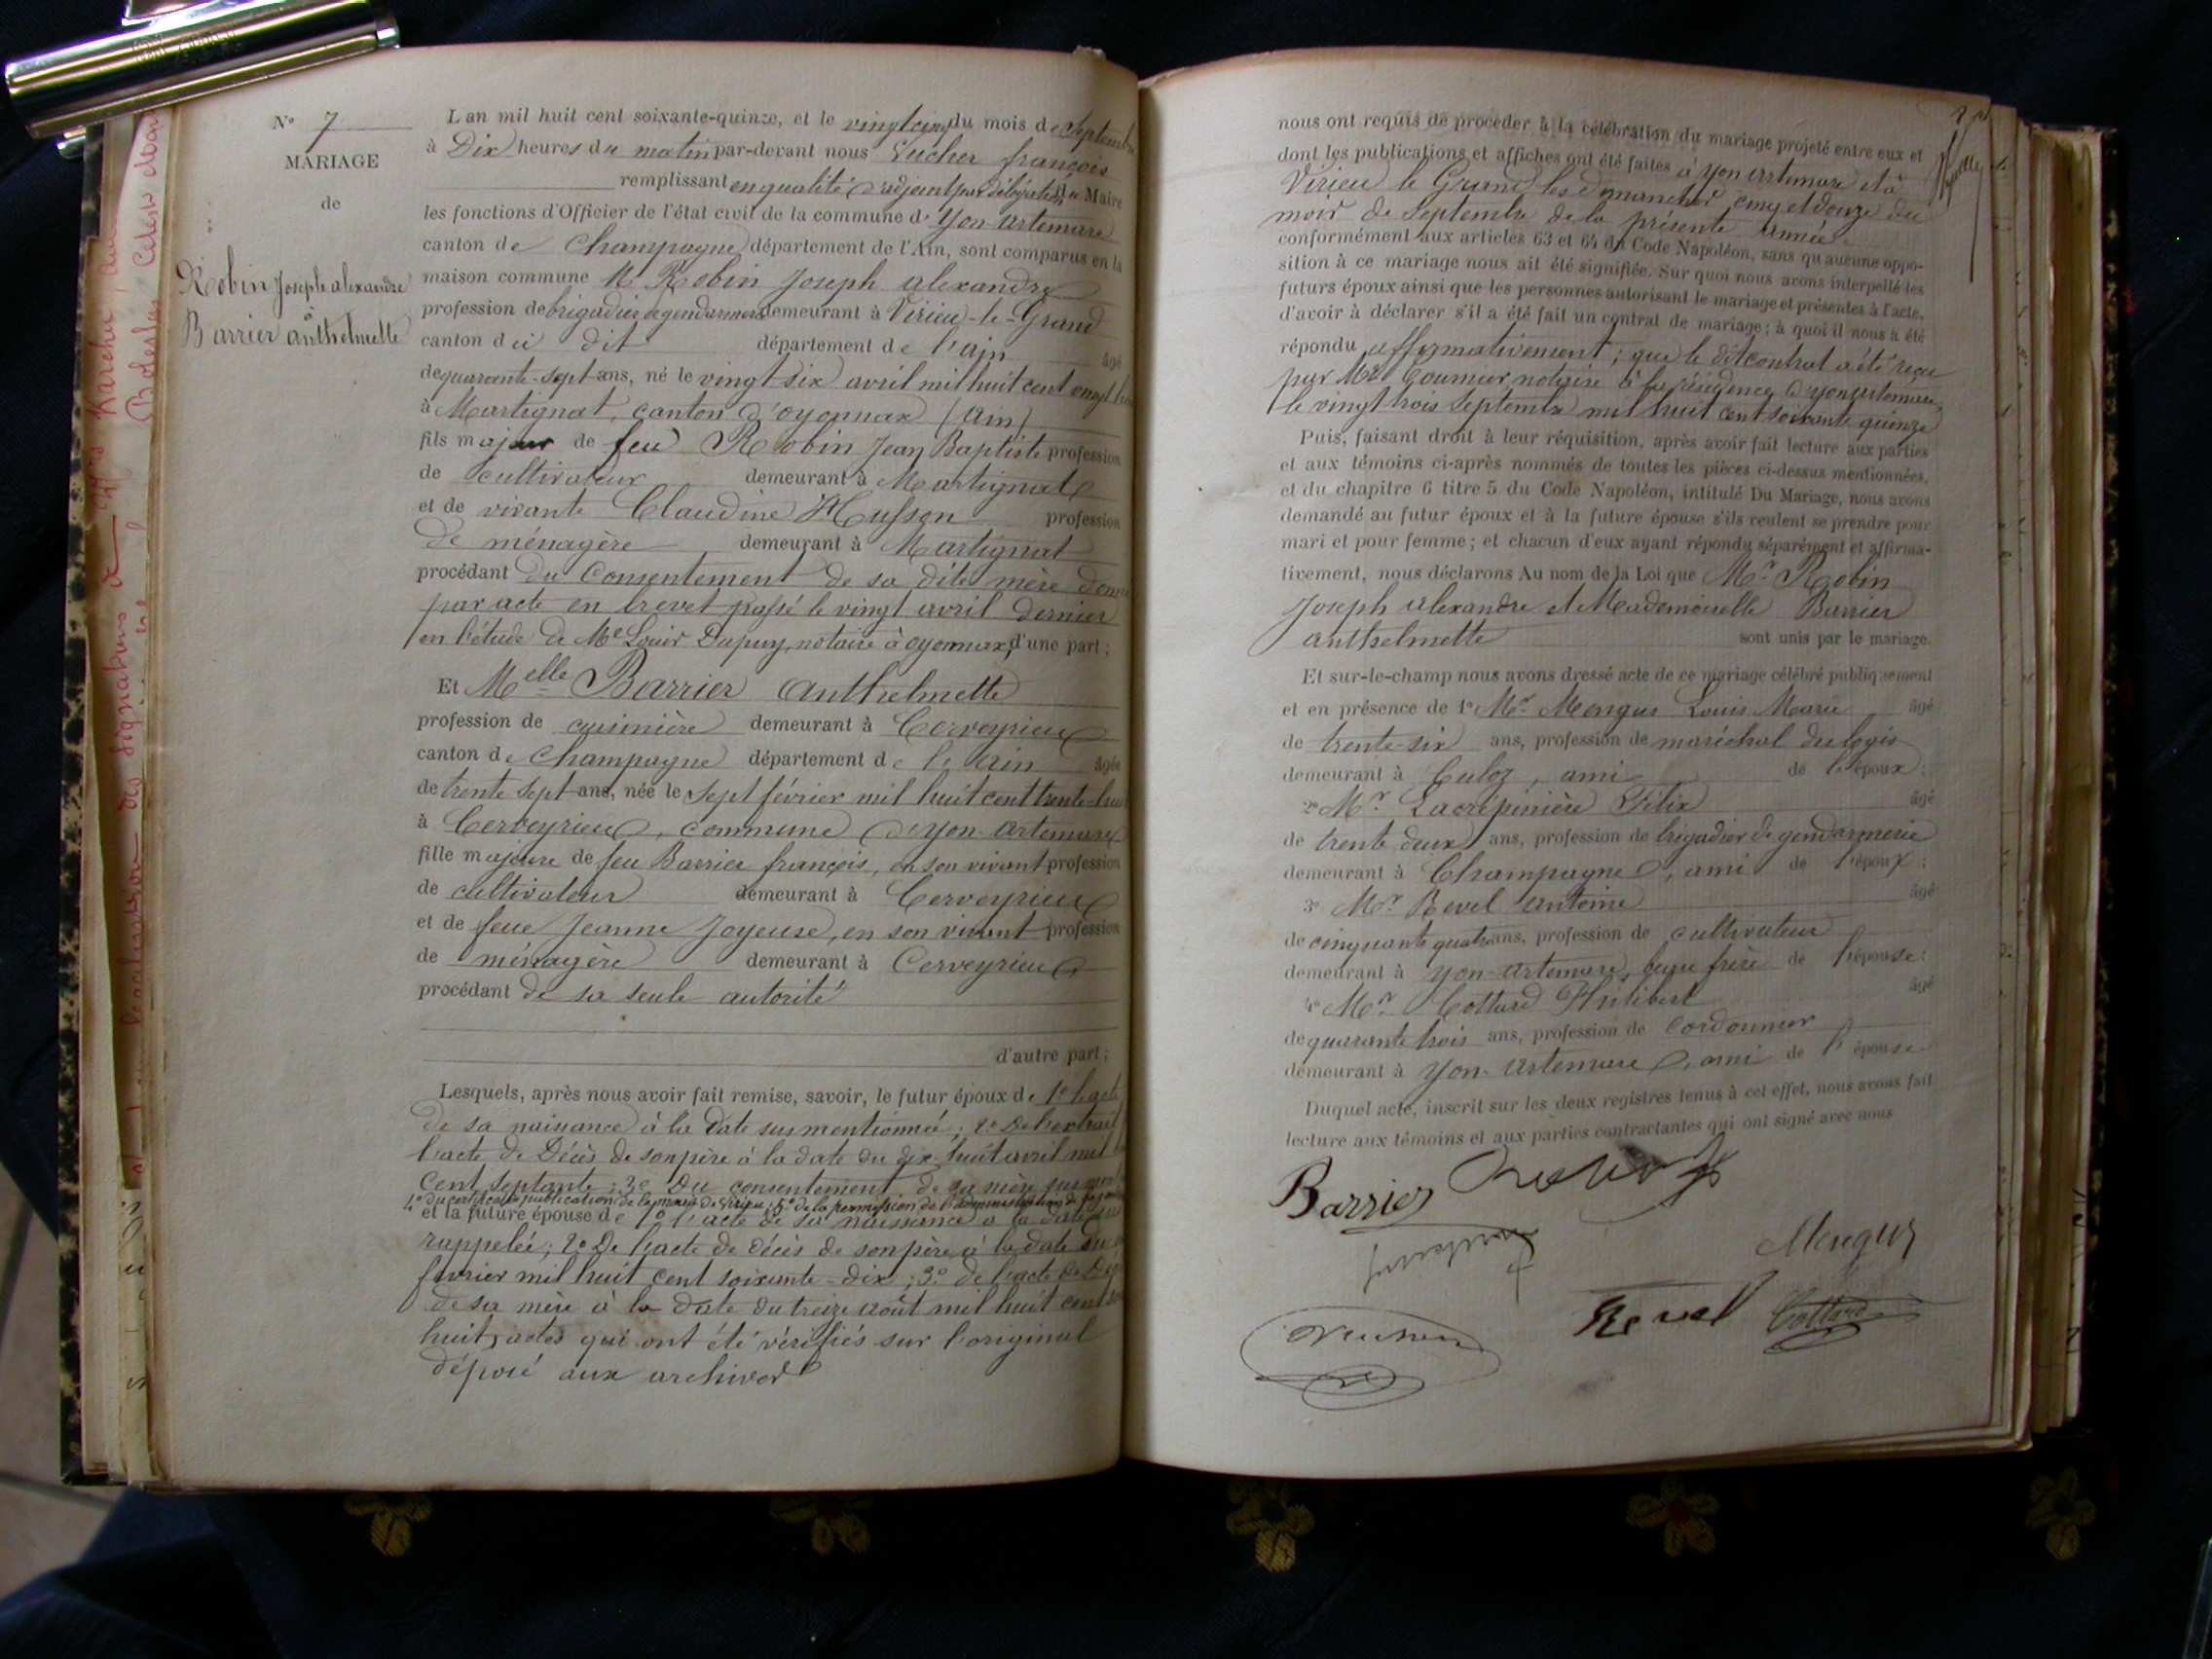 N° 7
MARIAGE
de
Robin Joseph alexandre
à
Barrier anthelmette
L'an mil huit cent soixante-quinze, et le vingt cinq du mois de Septembre
à Dix heures du matin par-devant nous Vucher françois
remplissant en qualité d'adjoint par délégation du Maire
les fonctions d'Officier de l'état civil de la commune d' Yon-artemare
canton de Champagne département de l'Ain, sont comparus en la
maison commune Mr Robin Joseph alexandre
profession de brigadier de gendarmerie demeurant à Virieu-le-Grand
canton du dit département de l'ain âgé
de quarante-sept ans, né le vingt six avril mil huit cent vingt huit
à Martignat, canton d'oyonnax (ain)
fils majeur de feu Robin Jean Baptiste profession
de cultivateur demeurant à Martignat
et de vivante Claudine Husson profession
de ménagère demeurant à Martignat
procédant du Consentement de sa dite mère donné
par acte en brevet passé le vingt avril dernier
en l'étude de Me Louis Dupuy, notaire à oyonnax, d'une part ;
Et Melle Barrier Anthelmette
profession de cuisinière demeurant à Cerveyrieu
canton de Champagne département de l'ain âgée
de trente sept ans, née le sept février mil huit cent trente-huit
à Cerveyrieu, commune d'yon-artemare
fille majeure de feu Barrier françois, en son vivant profession
de cultivateur demeurant à Cerveyrieu
et de feue Jeanne Joyeuse, en son vivant profession
de ménagère demeurant à Cerveyrieu
procédant de sa seule autorité
d'autre part ;
Lesquels, après nous avoir fait remise, savoir, le futur époux de 1° l'acte
de sa naissance à la date sus mentionnée ; 2° De l'extrait
l'acte de Décès de son père à la date du dix-huit avril mil
cent septante ; 3° Du consentement de sa mère
4° du certificat de publication de la mairie de Virieu ; 5° de la permission de l'administration de
et la future épouse de 1° l'acte de sa naissance à la date
rappelée ; 2° De l'acte de décès de son père à la date du
février mil huit cent soixante-dix ; 3° de l'acte de
de sa mère à la date du treize août mil huit cent
huit, actes qui ont été vérifiés sur l'original
déposé aux archives
nous ont requis de procéder à la célébration du mariage projeté entre eux et
dont les publications et affiches ont été faites à yon artemare et à
Virieu le Grand les dimanches cinq et douze du
mois de Septembre de la présente année
conformément aux articles 63 et 64 du Code Napoléon, sans qu'aucune oppo-
sition à ce mariage nous ait été signifiée. Sur quoi nous avons interpellé les
futurs époux ainsi que les personnes autorisant le mariage et présentes à l'acte,
d'avoir à déclarer s'il a été fait un contrat de mariage ; à quoi il nous a été
répondu affirmativement ; que le dit contrat a été reçu
par Me Cournier notaire à la résidence d'yon artemare,
le vingt trois Septembre mil huit cent soixante quinze
Puis, faisant droit à leur réquisition, après avoir fait lecture aux parties
et aux témoins ci-après nommés de toutes les pièces ci-dessus mentionnées,
et du chapitre 6 titre 5 du Code Napoléon, intitulé Du Mariage, nous avons
demandé au futur époux et à la future épouse s'ils veulent se prendre pour
mari et pour femme ; et chacun d'eux ayant répondu séparément et affirma-
tivement, nous déclarons Au nom de la Loi que Mr Robin
Joseph alexandre et Mademoiselle Barrier
anthelmette sont unis par le mariage.
Et sur-le-champ nous avons dressé acte de ce mariage célébré publiquement
et en présence de 1° Mr Mengus Louis Marie âgé
de trente-six ans, profession de maréchal des logis
demeurant à Culoz, ami de l'époux ;
2° Mr Lacrépinière Félix âgé
de trente deux ans, profession de brigadier de gendarmerie
demeurant à Champagne, ami de l'époux ;
3° Mr Revel antoine âgé
de cinquante quatre ans, profession de cultivateur
demeurant à yon-artemare, beau frère de l'épouse ;
4° Mr Cottard Philibert âgé
de quarante trois ans, profession de cordonnier
demeurant à yon-artemare, ami de l'épouse
Duquel acte, inscrit sur les deux registres tenus à cet effet, nous avons fait
lecture aux témoins et aux parties contractantes qui ont signé avec nous
Barrier
Mengus
Revel Cottard